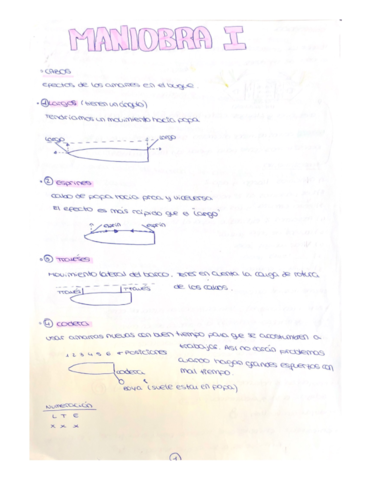 MANIOBRA I
· CABOS
Efectos de los amarres en el buque.
· ① Largos (tienen un ángulo)
Tendríamos un movimiento hacia popa
largo largo
· ② esprines
cabo de popa hacia proa y viceversa
El efecto es más rápido que el largo
esprin esprin
· ③ Traveses
Movimiento lateral del barco, tener en cuenta la carga de rotura
de los cabos.
través través
· ④ codera
usar amarras nuevas con buen tiempo para que se acostumbren a
trabajar. Así no darán problemas
cuando hagas grandes esfuerzos con
mal tiempo.
1 2 3 4 5 6 → posiciones
codera
boya (suele estar en popa)
NUMERACIÓN
L T E
x x x
1